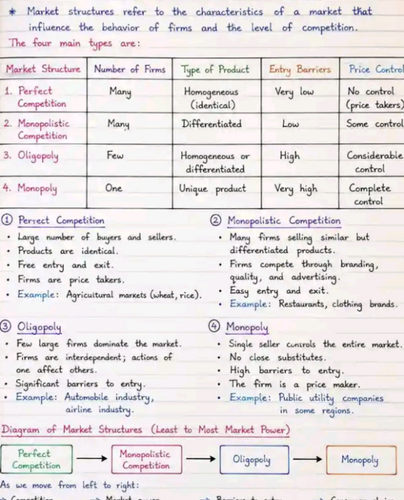 * Market structures refer to the characteristics of a market that
influence the behavior of firms and the level of competition.
The four main types are:
Market Structure Number of Firms Type of Product Entry Barriers Price Control
1. Perfect Competition Many Homogeneous (identical) Very low No control (price takers)
2. Monopolistic Competition Many Differentiated Low Some control
3. Oligopoly Few Homogeneous or differentiated High Considerable control
4. Monopoly One Unique product Very high Complete control
① Perfect Competition
• Large number of buyers and sellers.
• Products are identical.
• Free entry and exit.
• Firms are price takers.
• Example: Agricultural markets (wheat, rice).
② Monopolistic Competition
• Many firms selling similar but
differentiated products.
• Firms compete through branding,
quality, and advertising.
• Easy entry and exit.
• Example: Restaurants, clothing brands.
③ Oligopoly
• Few large firms dominate the market.
• Firms are interdependent; actions of
one affect others.
• Significant barriers to entry.
• Example: Automobile industry,
airline industry.
④ Monopoly
• Single seller controls the entire market.
• No close substitutes.
• High barriers to entry.
• The firm is a price maker.
• Example: Public utility companies
in some regions.
Diagram of Market Structures (Least to Most Market Power)
Perfect Competition → Monopolistic Competition → Oligopoly → Monopoly
As we move from left to right: